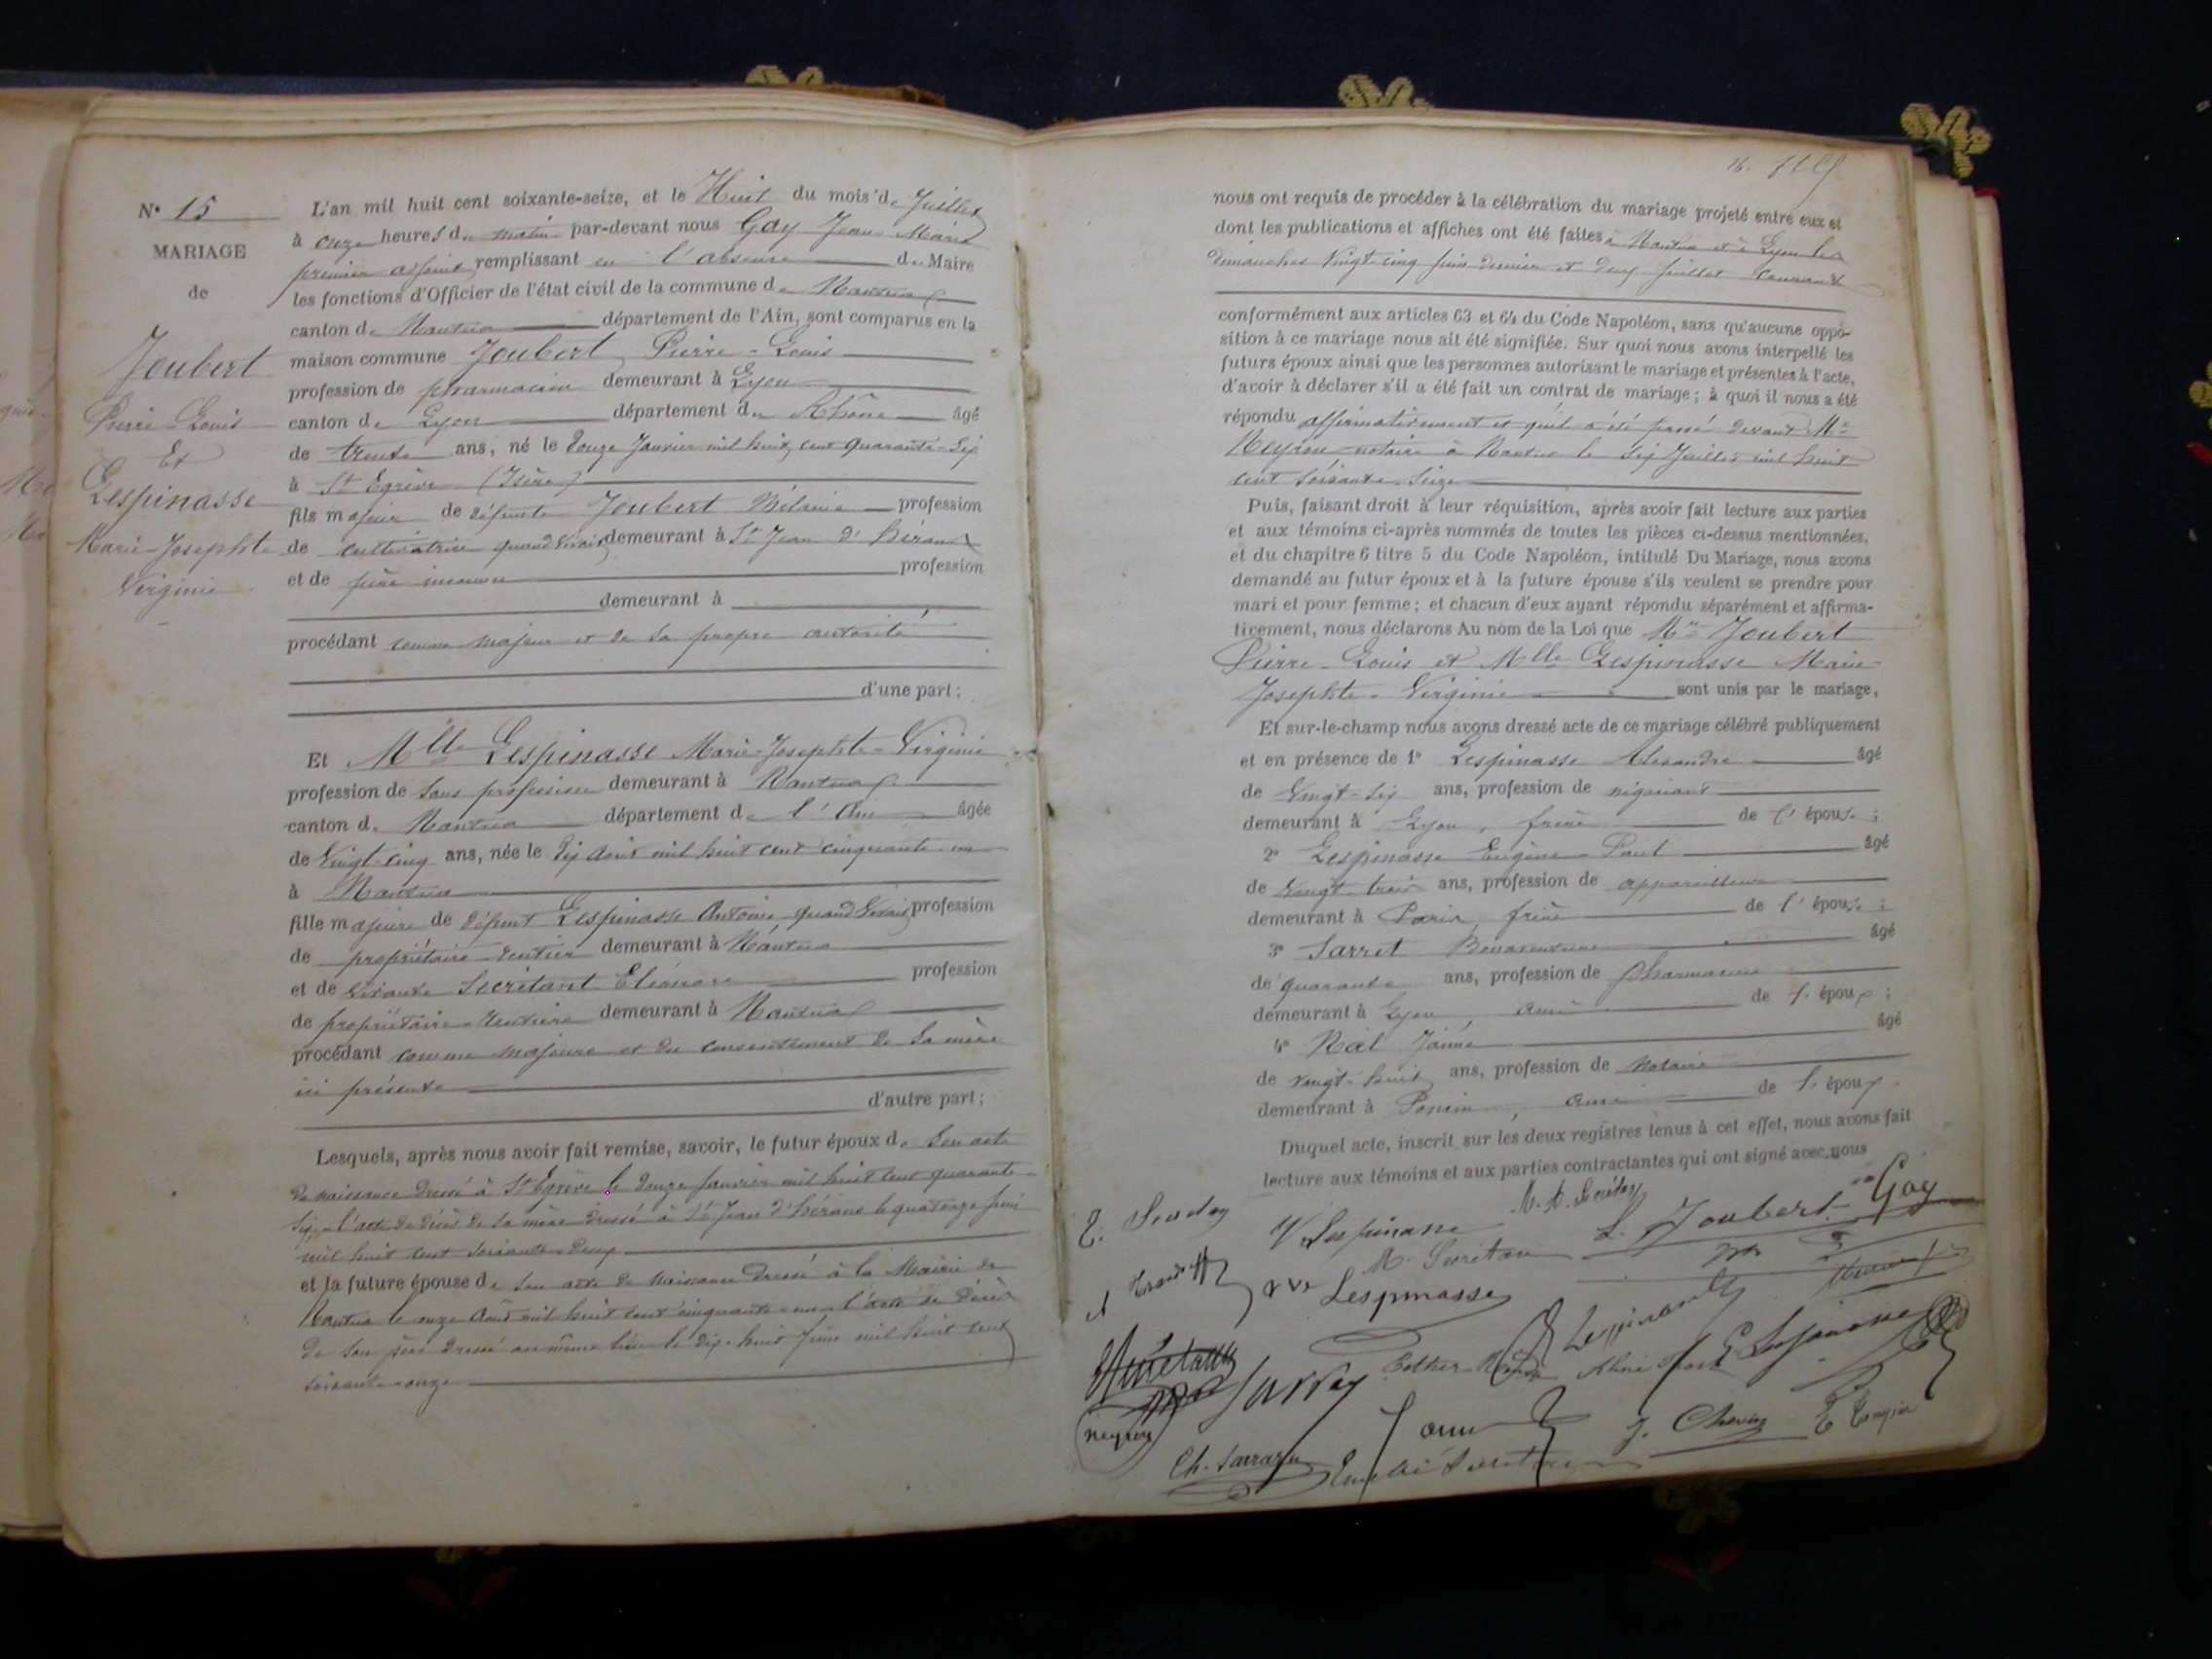 N° 15
MARIAGE
de
Joubert
Pierre-Louis
Et
Lespinasse
Marie-Josephte
Virginie
L'an mil huit cent soixante-seize, et le Huit du mois de Juillet
à onze heures du matin par-devant nous Gay Jean-Marie
premier adjoint remplissant en l'absence du Maire
les fonctions d'Officier de l'état civil de la commune de Nantua
canton de Nantua département de l'Ain, sont comparus en la
maison commune Joubert Pierre-Louis
profession de pharmacien demeurant à Lyon
canton de Lyon département du Rhône âgé
de trente ans, né le douze Janvier mil huit cent quarante-six
à St Egrève (Isère)
fils majeur de défunte Joubert Mélanie profession
de cultivatrice quand vivait demeurant à St Jean d'Hérans
et de père inconnu profession
demeurant à
procédant comme majeur et de sa propre autorité
d'une part;
Et Mlle Lespinasse Marie-Josephte-Virginie
profession de sans profession demeurant à Nantua
canton de Nantua département de l'Ain âgée
de vingt-cinq ans, née le dix Août mil huit cent cinquante-un
à Nantua
fille majeure de défunt Lespinasse Antoine quand vivait profession
de propriétaire rentier demeurant à Nantua
et de vivante Secrétant Eléonore profession
de propriétaire-rentière demeurant à Nantua
procédant comme majeure et du consentement de sa mère
ici présente
d'autre part;
Lesquels, après nous avoir fait remise, savoir, le futur époux de son acte
de naissance dressé à St Egrève le douze Janvier mil huit cent quarante-
six, l'acte de décès de sa mère dressé à St Jean d'Hérans le quatorze juin
mil huit cent soixante-deux
et la future épouse de son acte de naissance dressé à la Mairie de
Nantua le onze Août mil huit cent cinquante-un, l'acte de décès
de son père dressé au même lieu le dix-huit Juin mil huit cent
soixante-onze
nous ont requis de procéder à la célébration du mariage projeté entre eux et
dont les publications et affiches ont été faites à Nantua et à Lyon les
dimanches vingt-cinq juin dernier et deux juillet courant
conformément aux articles 63 et 64 du Code Napoléon, sans qu'aucune oppo-
sition à ce mariage nous ait été signifiée. Sur quoi nous avons interpellé les
futurs époux ainsi que les personnes autorisant le mariage et présentes à l'acte,
d'avoir à déclarer s'il a été fait un contrat de mariage; à quoi il nous a été
répondu affirmativement et qu'il a été passé devant Me
notaire à Nantua le six Juillet mil huit
cent soixante-seize
Puis, faisant droit à leur réquisition, après avoir fait lecture aux parties
et aux témoins ci-après nommés de toutes les pièces ci-dessus mentionnées,
et du chapitre 6 titre 5 du Code Napoléon, intitulé Du Mariage, nous avons
demandé au futur époux et à la future épouse s'ils veulent se prendre pour
mari et pour femme; et chacun d'eux ayant répondu séparément et affirma-
tivement, nous déclarons Au nom de la Loi que Mr Joubert
Pierre-Louis et Mlle Lespinasse Marie-
Josephte-Virginie sont unis par le mariage,
Et sur-le-champ nous avons dressé acte de ce mariage célébré publiquement
et en présence de 1° Lespinasse Alexandre âgé
de vingt-six ans, profession de négociant
demeurant à Lyon, frère de l'épouse;
2° Lespinasse Eugène-Paul âgé
de vingt-trois ans, profession de appareilleur
demeurant à Paris, frère de l'épouse;
3° Sarret Bonaventure âgé
de quarante ans, profession de pharmacien
demeurant à Lyon, ami de l'époux;
4° Réal Jaimé âgé
de vingt-huit ans, profession de notaire
demeurant à Poncin, ami de l'époux.
Duquel acte, inscrit sur les deux registres tenus à cet effet, nous avons fait
lecture aux témoins et aux parties contractantes qui ont signé avec nous
V. Lespinasse
L. Joubert
Gay
Vve Lespinasse
Lespinasse
E. Lespinasse
Ch. Sarrazin